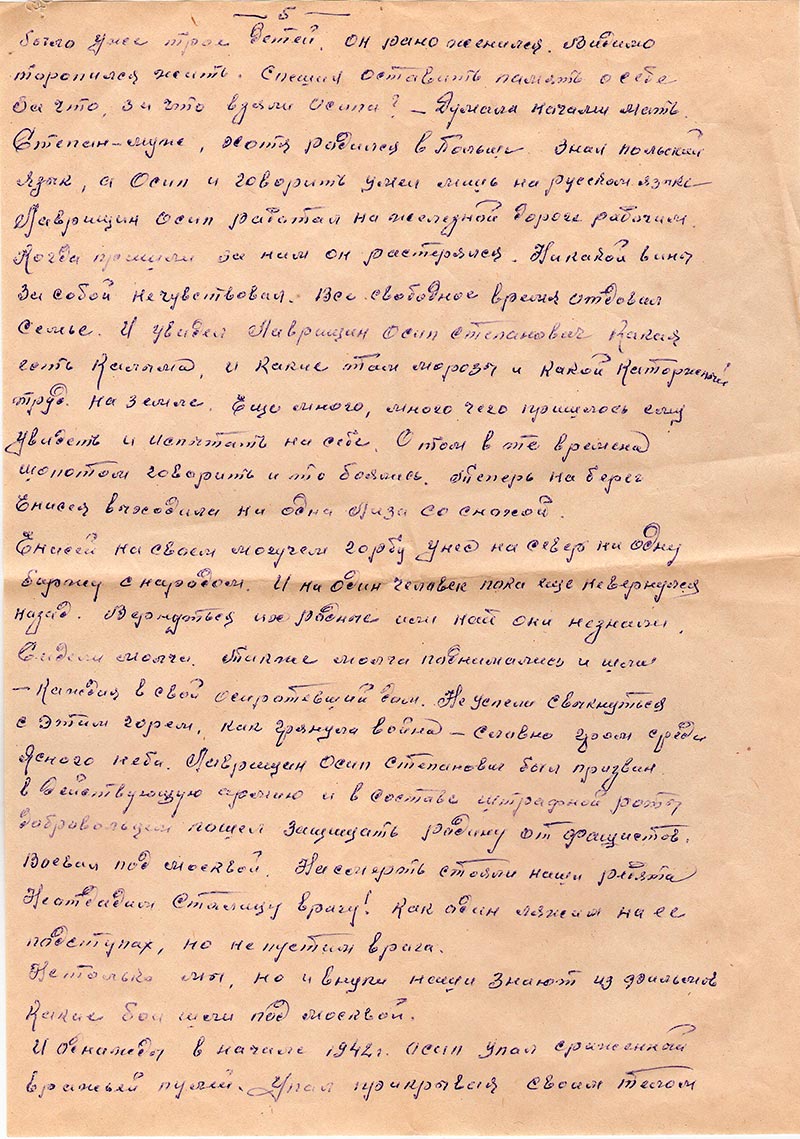 — 5 —
было уже трое детей. Он рано женился. Видимо
торопился жить. Спешил оставить память о себе
За что, за что взяли Осипа? — Думала ночами мать.
Степан-муж, хотя родился в Польше. Знал польский
язык, а Осип и говорить умел лишь на русском языке
Лаврищин Осип работал на железной дороге рабочим.
Когда пришли за ним он растерялся. Никакой вины
За собой нечувствовал. Все свободное время отдовал
семье. И увидел Лаврищин Осип Степанович Какая
есть Калыма, и какие там морозы и какой Каторжный
труд. на земле. Ещо много, много чего пришлось ему
увидеть и испытать на себе. О том в те времена
шопотом говорить и то боялись. Теперь на берег
Енисея выходила ни одна Лиза со снохой.
Енисей на своем могучем горбу унес на север ни одну
баржу с народом. И ни один человек пока еще невернулся
назад. Вернуться их родные или най они незнали.
Сидели молча. Также молча поднимались и шли
— Каждая в свой осиротевший дом. Не успели свыкнуться
с этим горем, как грянула война — Словно гром среди
Ясного неба. Лаврищин Осип Степанович был призван
в Действующую армию и в составе штрафной роты
добровольцем пошел защищать родину от фащистов.
Воевал под Москвой. Насмерть стояли наши ребята
Неотдадим Столицу врагу! Как один ляжим на ее
подступах, но не пустим врага.
Нетолько мы, но и внуки наши знают из фильмов
Какие бои шли под Москвой.
И однажды в начале 1942г. Осип упал сраженный
вражьей пулей. Упал прикрывая своим телом